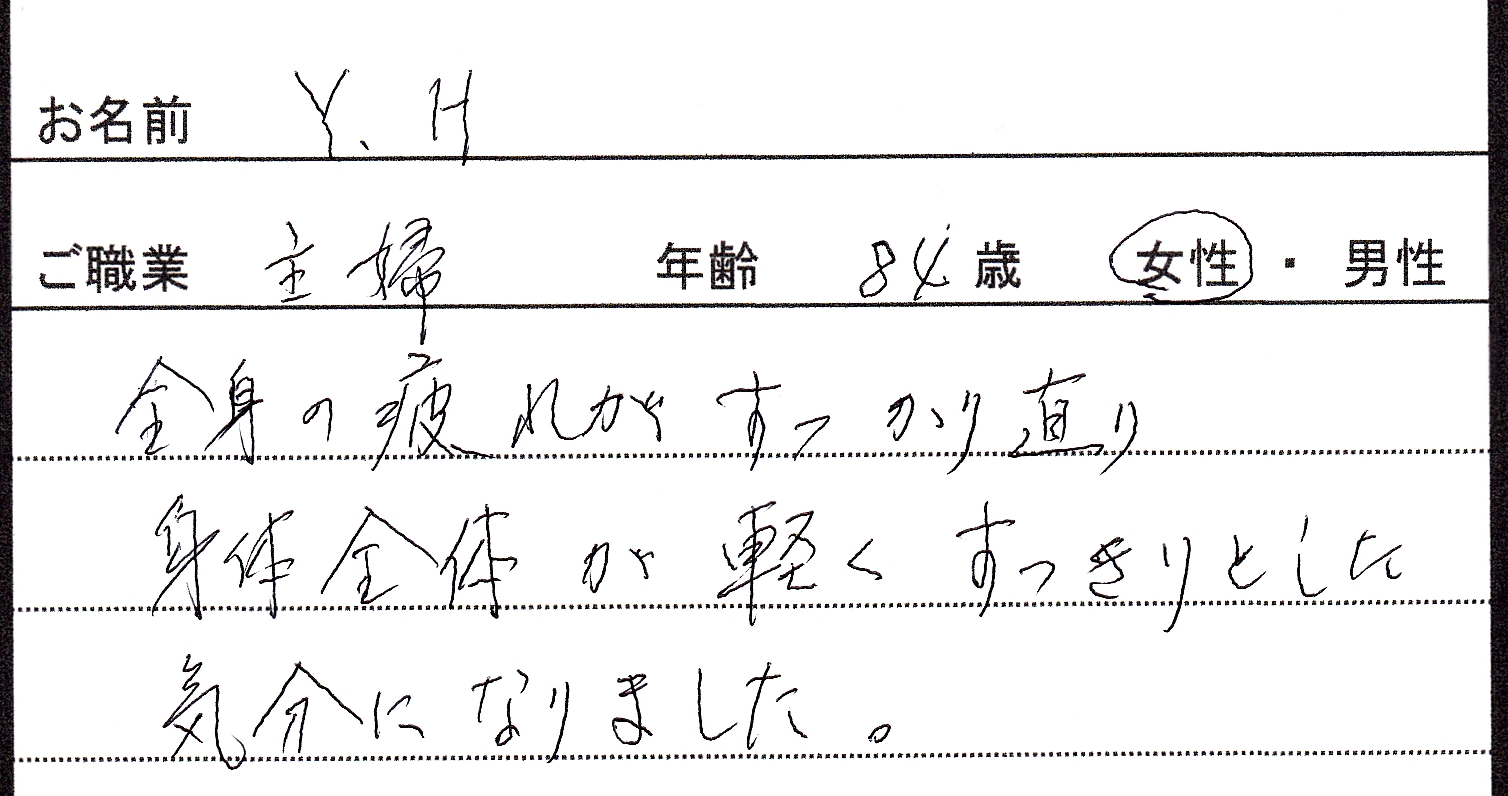 お名前 Y. H
ご職業 主婦 年齢 84歳 女性・男性
全身の疲れがすっかり直り
身体全体が軽くすっきりとした
気分になりました。